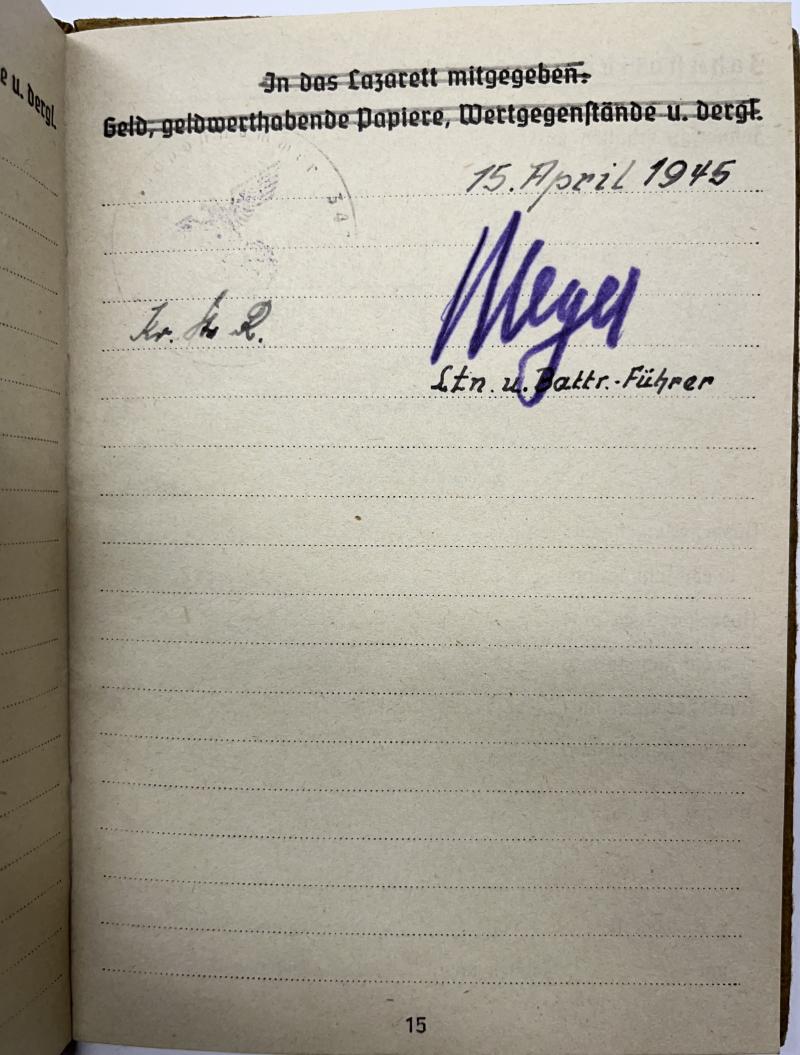 e u. dergl.
In das Lazarett mitgegeben.
Geld, geldwerthabende Papiere, Wertgegenstände u. dergl.
15. April 1945
Meyer
Kr. R.
Ltn. u. Battr.-Führer
15